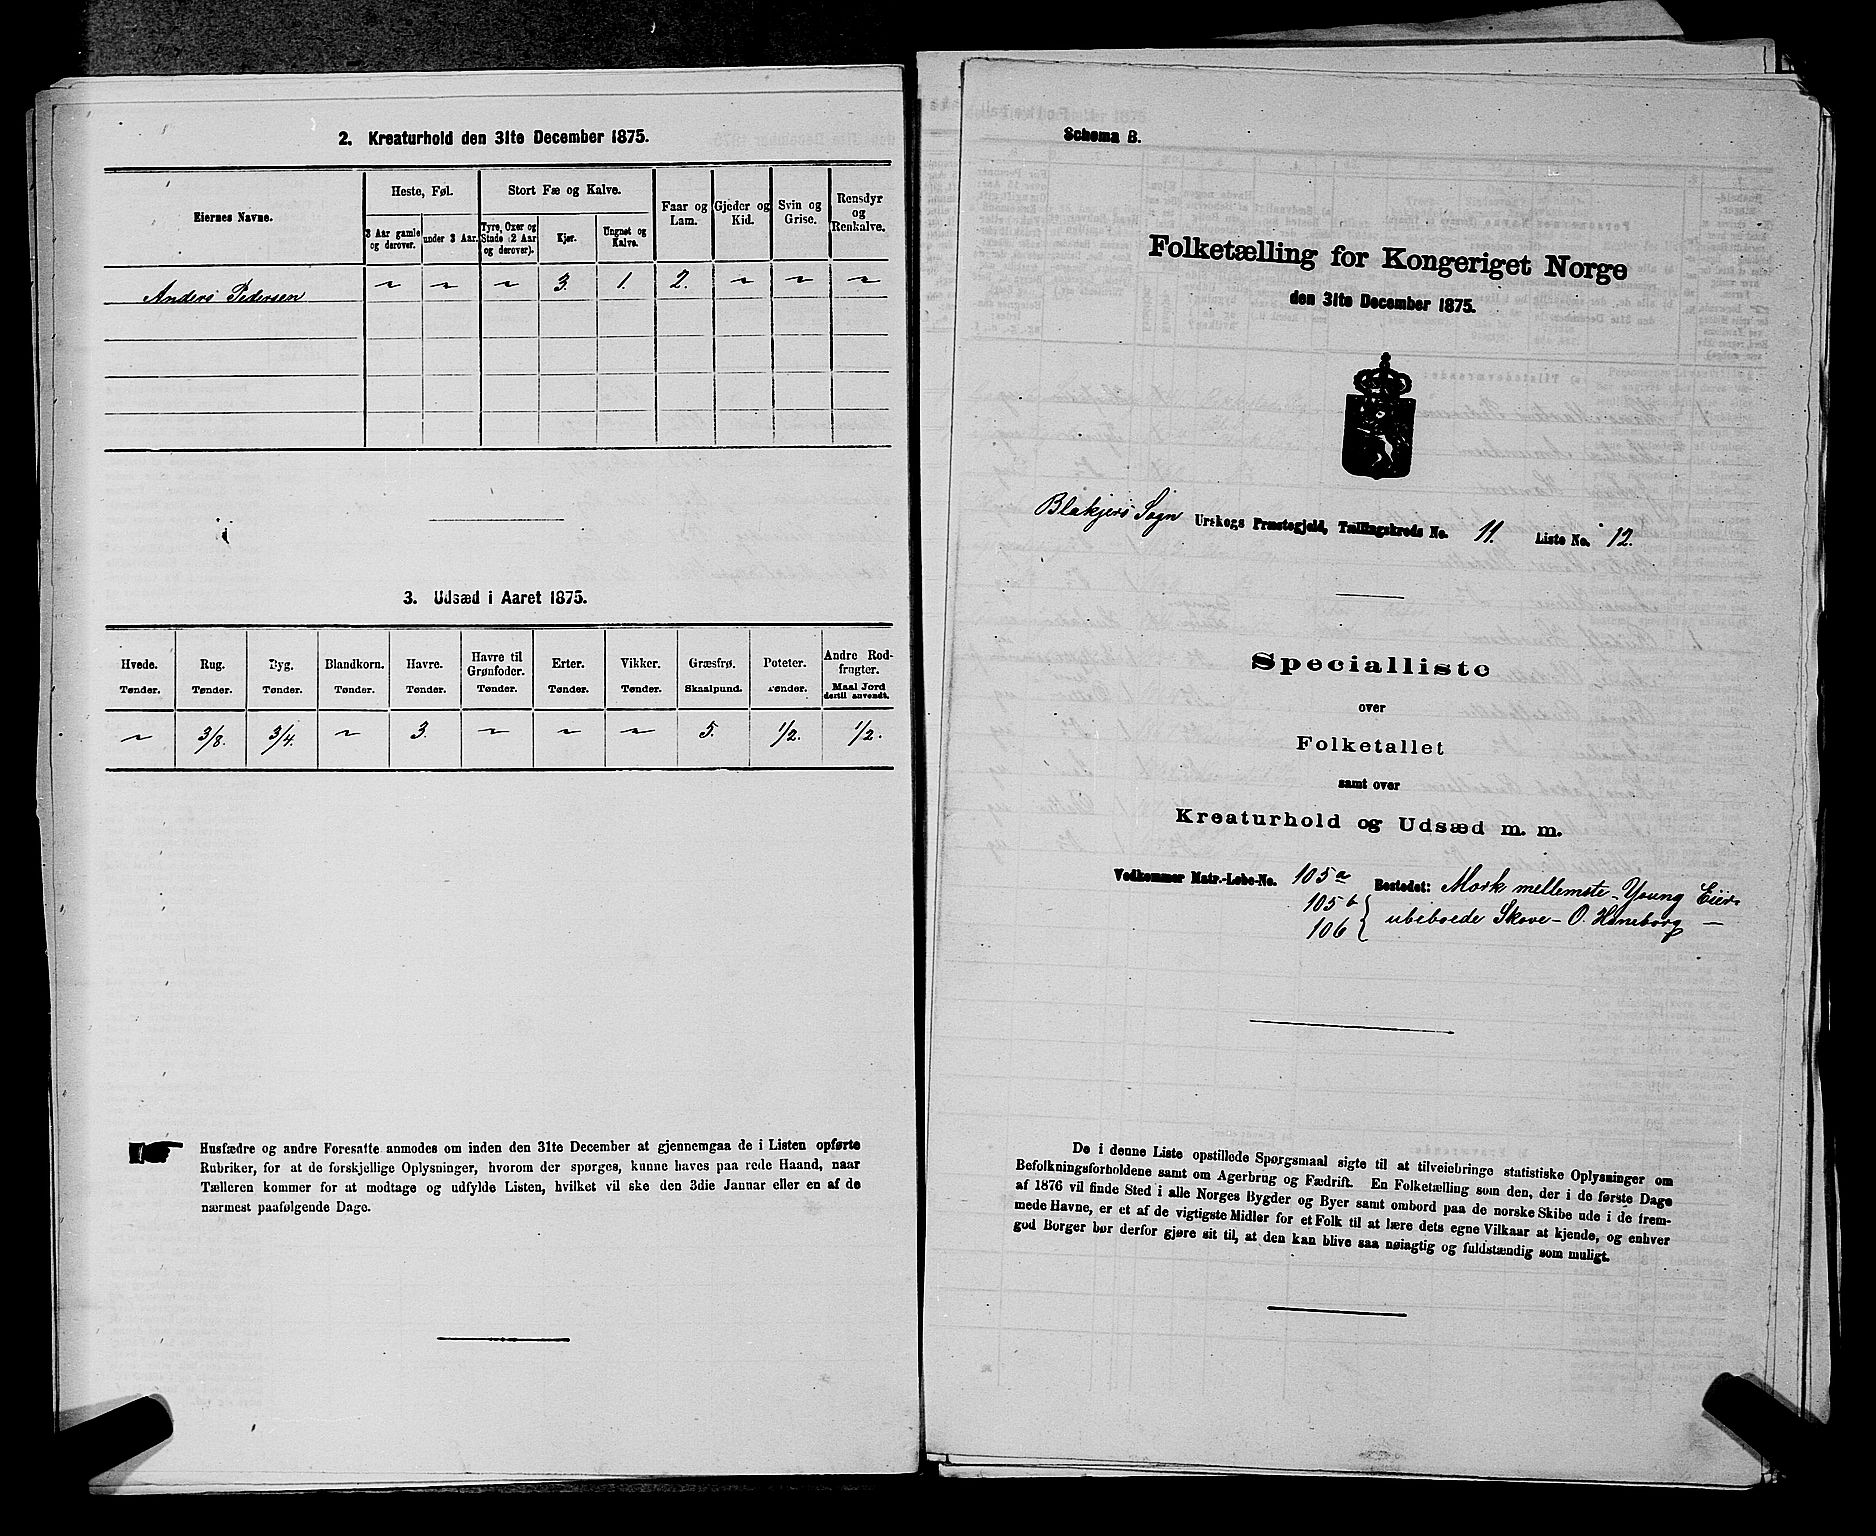 2. Kreaturhold den 31te December 1875.
Eiernes Navne.
Heste, Føl.
Stort Fæ og Kalve.
Faar og Lam.
Gjeder og Kid.
Svin og Grise.
Rensdyr og Renkalve.
3 Aar gamle og derover.
under 3 Aar.
Tyre, Oxer og Stude (2 Aar og derover).
Kjør.
Ungnøt og Kalve.
Anders Pedersen " " " 3. 1. 2. " " "
3. Udsæd i Aaret 1875.
Hvede. Rug. Byg. Blandkorn. Havre. Havre til Grønfoder. Erter. Vikker. Græsfrø. Poteter. Andre Rodfrugter.
Tønder. Tønder. Tønder. Tønder. Tønder. Tønder. Tønder. Tønder. Skaalpund. Tønder. Maal Jord dertil anvendt.
" 3/8. 3/4. " 3. " " " 5. 1/2. 1/2.
Husfædre og andre Foresatte anmodes om inden den 31te December at gjennemgaa de i Listen opførte
Rubriker, for at de forskjellige Oplysninger, hvorom der spørges, kunne haves paa rede Haand, naar
Tælleren kommer for at modtage og udfylde Listen, hvilket vil ske den 3die Januar eller en af de
nærmest paafølgende Dage.
Schema B.
Folketælling for Kongeriget Norge
den 31te December 1875.
Blakjers Sogn Urskogs Præstegjeld, Tællingskreds No. 11. Liste No. 12.
Specialliste
over
Folketallet
samt over
Kreaturhold og Udsæd m. m.
Vedkommer Matr.-Løbe-No. 105a Bostedet: Mork mellemste - Young Eier
105b
106 } ubeboede Skove - O. Haneborg —
De i denne Liste opstillede Spørgsmaal sigte til at tilveiebringe statistiske Oplysninger om
Befolkningsforholdene samt om Agerbrug og Fædrift. En Folketælling som den, der i de første Dage
af 1876 vil finde Sted i alle Norges Bygder og Byer samt ombord paa de norske Skibe ude i de frem-
mede Havne, er et af de vigtigste Midler for et Folk til at lære dets egne Vilkaar at kjende, og enhver
god Borger bør derfor gjøre sit til, at den kan blive saa nøiagtig og fuldstændig som muligt.